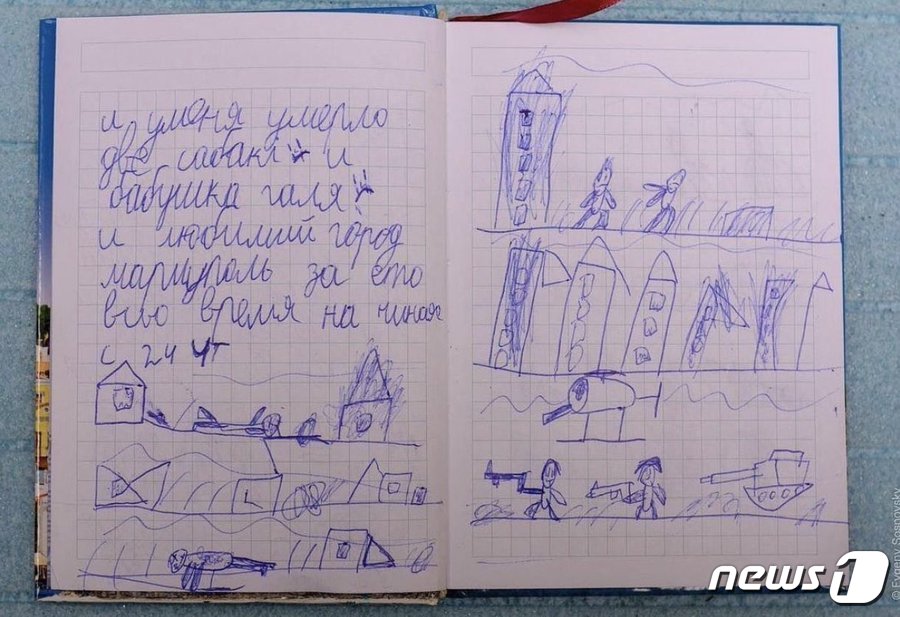 и уменя умерло
две сабаки и
бабушка галя
и любимий город
марцуполь за ето
всю время на чиная
с 24 чт
news1
© Evgeny Sosnovsky